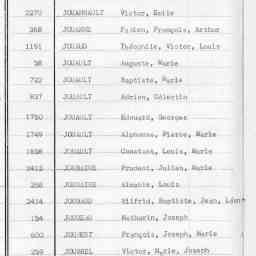 2270 JOUANNAULT Victor, Emile
368 JOUANNE Fabien, François, Arthur
1191 JOUAUD Théophile, Victor, Louis
38 JOUAULT Auguste, Marie
722 JOUAULT Baptiste, Marie
837 JOUAULT Adrien, Célestin
1750 JOUAULT Edouard, Georges
1749 JOUAULT Alphonse, Pierre, Marie
1898 JOUAULT Constant, Louis, Marie
2413 Prudent, Julien, Marie
258 Aimable, Louis
2414 Wilfrid, Baptiste, Jean, Léon
154 JOUBEAU Mathurin, Joseph
600 François, Joseph, Marie
259 Victor, Marie, Joseph